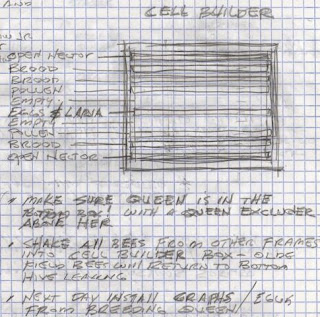 AND
CELL BUILDER
JR.
OPEN NECTOR
BROOD
BROOD
POLLEN
EMPTY
EGGS & LARVA
EMPTY
POLLEN
BROOD
OPEN NECTOR
• MAKE SURE QUEEN IS IN THE
BOTTOM BOX! WITH A QUEEN EXCLUDER
ABOVE HER
• SHAKE ALL BEES FROM OTHER FRAMES
INTO CELL BUILDER BOX - OLDE
FIELD BEES WILL RETURN TO BOTTOM
HIVE LEAVING
• NEXT DAY INSTALL GRAFTS /
FROM BREEDING QUEEN /